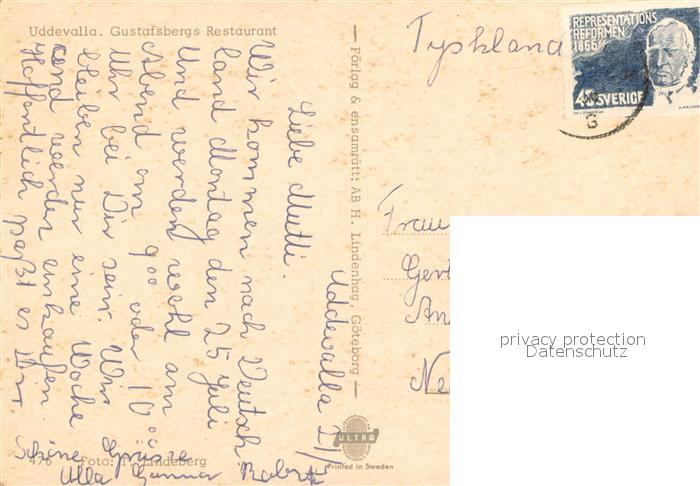 Uddevalla. Gustafsbergs Restaurant
Uddevalla 21/7
Liebe Mutti.
Wir kommen nach Deutsch-
land Montag den 25 Juli
Und werden wohl am
Abend om 9 00 oder 10 00
Uhr bei Dir sein. Wir
bleiben nur eine Woche
und werden einkaufen.
Hoffentlich paßt es Dir
Schöne Grüsse
Ulla Gunnar
476 Foto: Lindeberg
— Förlag & ensamrätt: AB H. Lindenhag, Göteborg —
ULTRA
Printed in Sweden
Tyskland
REPRESENTATIONS
REFORMEN
1866
SVERIGE
Frau
Ger
An
Ne
privacy protection
Datenschutz